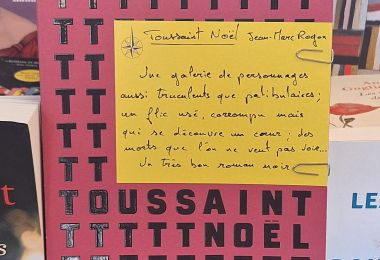 TOUSSAINT
Toussaint Noël Jean-Marc Rogon
Une galerie de personnages
aussi truculents que patibulaires ;
un flic usé, corrompu mais
qui se découvre un cœur ; des
morts que l'on ne veut pas voir...
Un très bon roman noir
T T
T T
T T
T T
T T
TOUSSAINT
TTTTTNOËL
LE